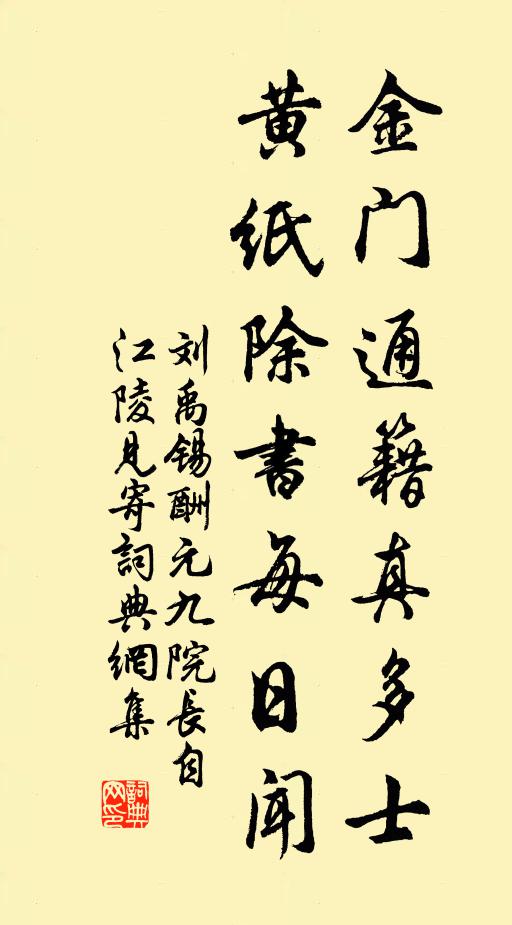 金门通籍真多士
黄纸除书每日闻
刘禹锡酬元九院長自
江陵見寄詞典網集
詞典
网印